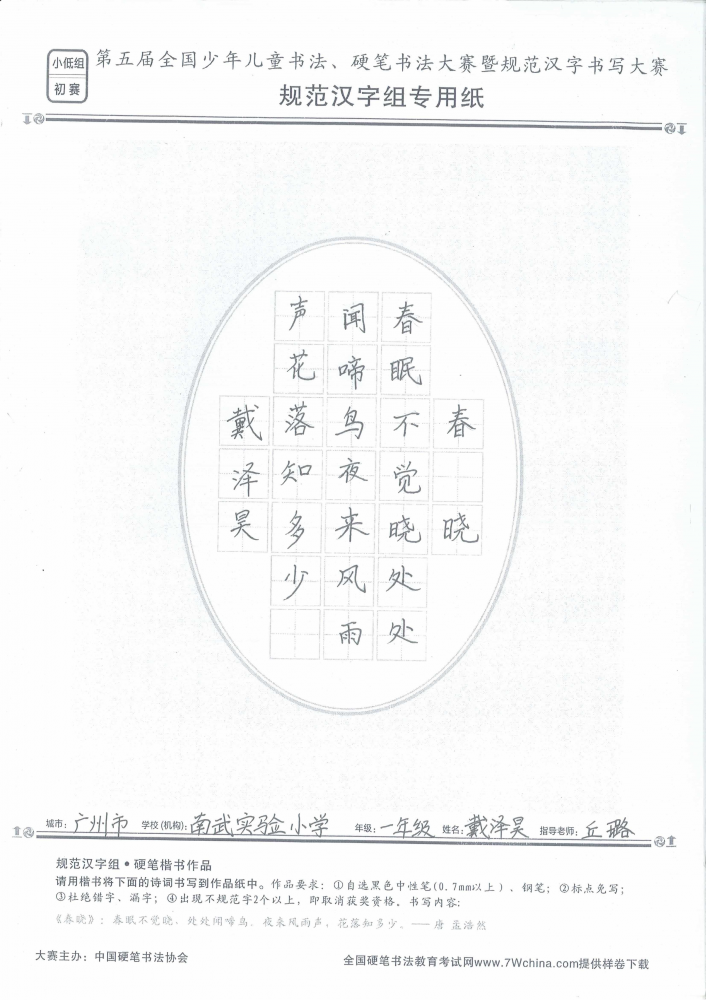 小低组
初赛
第五届全国少年儿童书法、硬笔书法大赛暨规范汉字书写大赛
规范汉字组专用纸
春晓
春眠不觉晓处处
闻啼鸟夜来风雨
声花落知多少
戴泽昊
城市：广州市 学校(机构)：南武实验小学 年级：一年级 姓名：戴泽昊 指导老师：丘璐
规范汉字组•硬笔楷书作品
请用楷书将下面的诗词书写到作品纸中。作品要求：①自选黑色中性笔(0.7mm以上)、钢笔；②标点免写；
③杜绝错字、漏字；④出现不规范字2个以上，即取消获奖资格。书写内容：
《春晓》：春眠不觉晓，处处闻啼鸟。夜来风雨声，花落知多少。——唐 孟浩然
大赛主办：中国硬笔书法协会 全国硬笔书法教育考试网www.7Wchina.com提供样卷下载